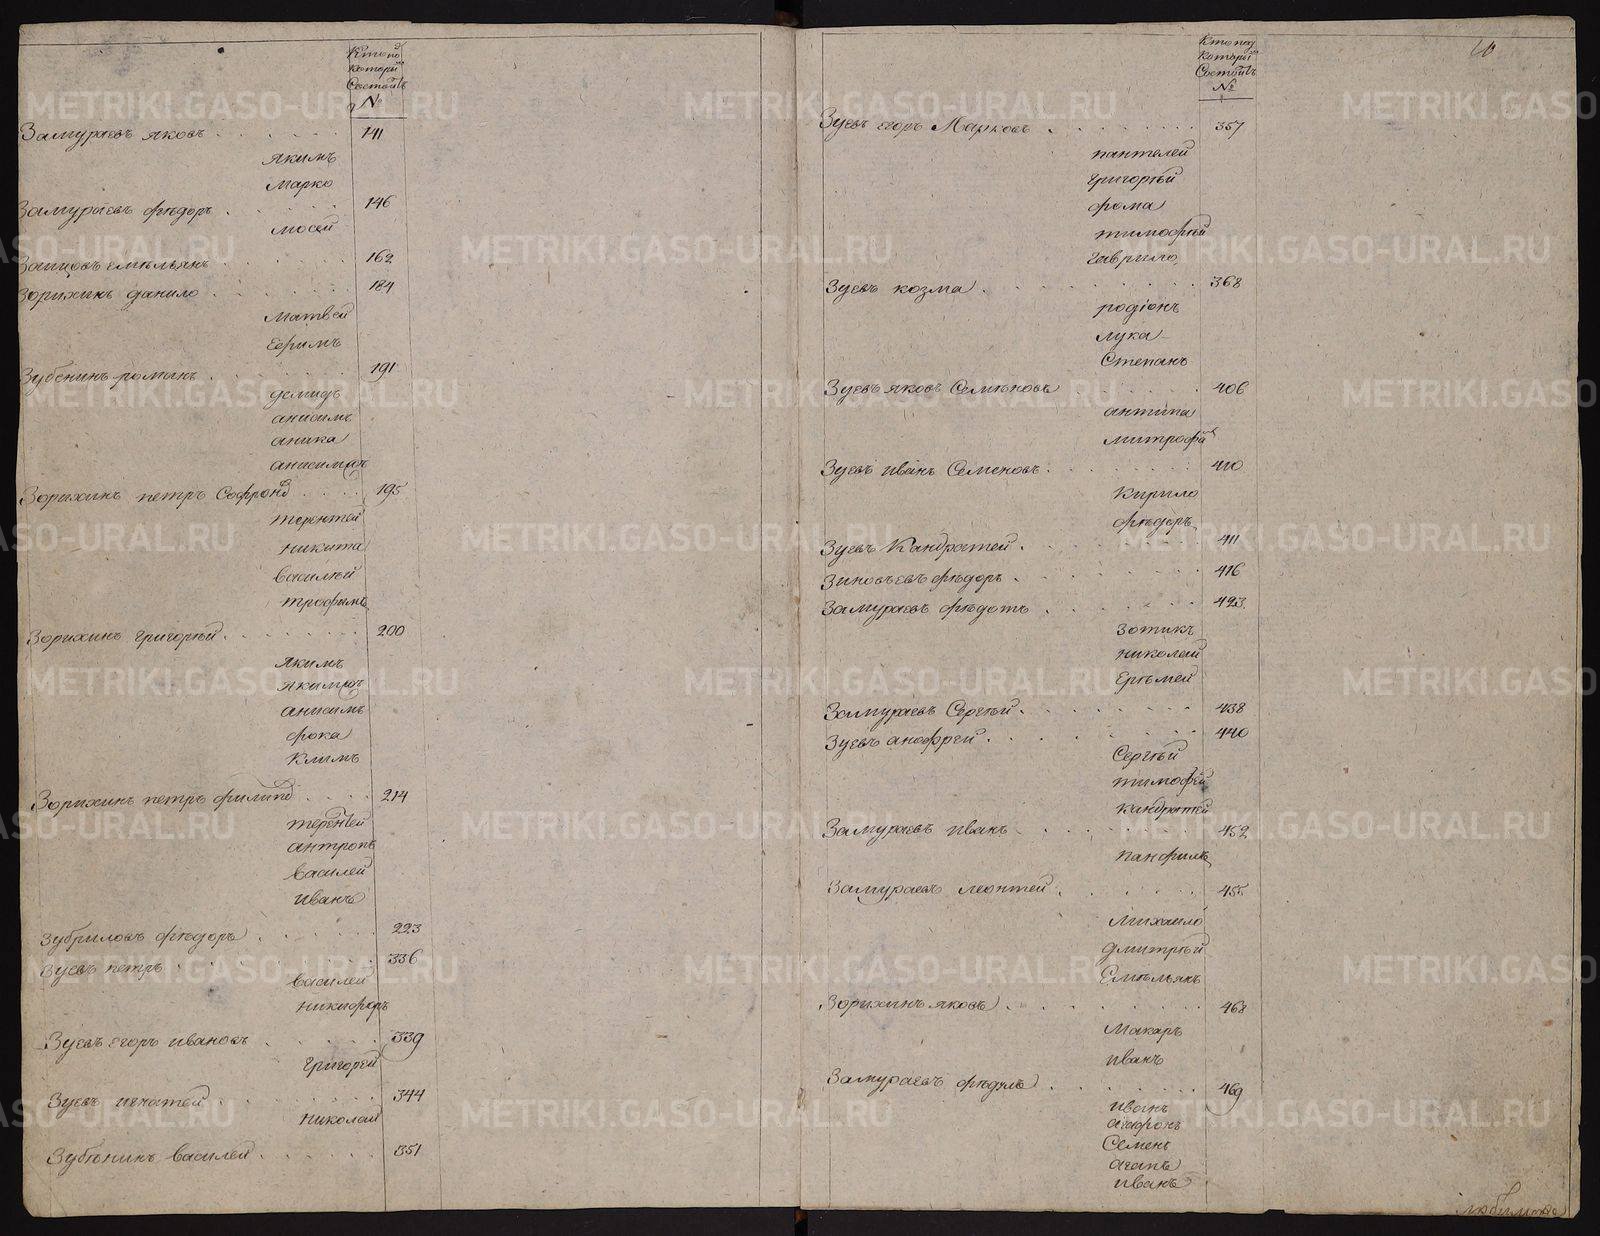 Кто по
которы
Состоитъ
№
Замураевъ яковъ 141
якимъ
марко
Замураевъ фѣдоръ 146
мосей
Заицовъ емѣльянъ 162
Зорихинъ данило 184
матвей
Ефимъ
Зубенинъ романъ 191
демидъ
анисимъ
аника
анисимъ
Зорихинъ петръ Софронов 195
терентей
никита
василѣй
трофимъ
Зорихинъ григорѣй 200
якимъ
якимъ
анисимъ
фока
климъ
Зорихинъ петръ филипов 214
терентей
антропъ
василей
иванъ
Зубриловъ фѣдоръ 223
Зуевъ петръ 336
василей
никифоръ
Зуевъ егоръ ивановъ 339
григорей
Зуевъ игнатей 344
николай
Зубѣнинъ василей 351
Кто под
которы
Состоитъ
№
Зуевъ егоръ Марковъ 357
пантелей
григорѣй
фома
тимофѣй
гаврило
Зуевъ козма 368
родiонъ
лука
Степанъ
Зуевъ яковъ Семѣновъ 406
антипа
митрофа
Зуевъ иванъ Семеновъ 410
Кирило
фѣдоръ
Зуевъ Кандратей 411
Зиновьевъ фѣдоръ 416
Замураевъ фѣдотъ 423
Зотикъ
николай
Ерѣмей
Замураевъ Сергѣй 438
Зуевъ анофрей 440
Сергѣй
тимофей
кандратей
Замураевъ иванъ 452
панфилъ
Замураевъ леонтей 455
михаило
дмитрѣй
Емѣльянъ
Зорихинъ яковъ 468
Макаръ
иванъ
Замураевъ фѣдулъ 469
иванъ
агафонъ
Семенъ
агапъ
иванъ
METRIKI.GASO-URAL.RU